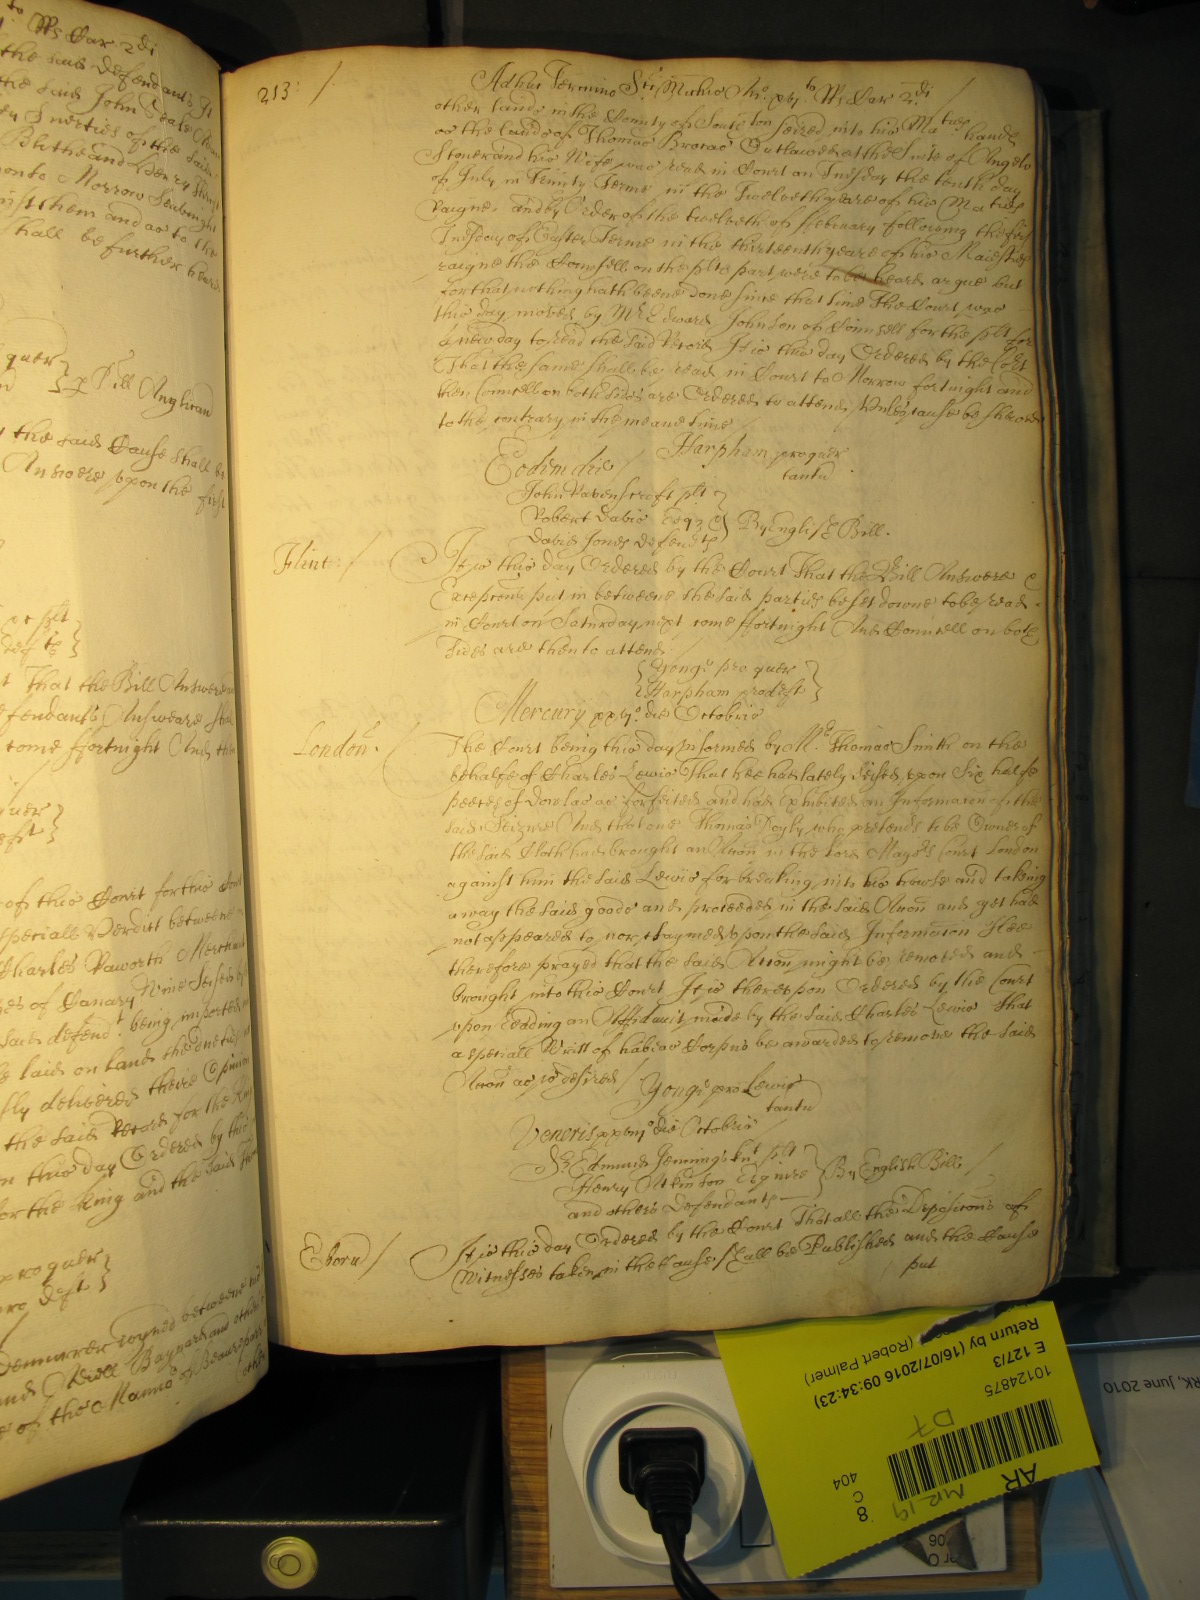 to Rs Car 2di
the said Defendants It
the said John Seale
Blithe and Henry
to Morrow Sevenight
against them and as to the
shall be further heard
quer
Bill Anglican
the said Cause shall be
Answere upon the first
plt
That the Bill Answere
Defendants Answeare shall
come ffortnight And then
of this Court for this
speciall Verdict betweene
Charles Paworth Merchant
of Canary Wine Seised
said defendt being imported
laid on land the
delivered theire Opinion
the said Record for the King
this day Ordered by the
for the King and the said
pro quer
pro deft
Demurrer joyned betweene
and Will Baynard and others
of the Mannor of
213 /
Adhuc Termino Sti Michis Ao xxjto Rs Car 2di
other lands in the County of Southton seized into his Maties hands
as the lands of Thomas Brocas Outlawed at the Suite of Angelo
Stoner and his Wife was read in Court on Tuesday the tenth day
of July in Trinity Terme in the Twelveth yeare of his Maties
Raigne and by Order of the twelveth of February following the first
Tuesday of Easter Terme in the thirteenth yeare of his Majesties
raigne the Counsell on the plts part were to be heard argue but
for that nothing hath beene done since that time The Court was
this day moved by Mr Edward Johnson of Counsell for the plt for
a new day to read the said Record It is this day Ordered by the Cort
That the same shall be read in Court to Morrow fortnight and
then Councell on both sides are Ordered to attend Unles cause be shewed
to the contrary in the meane time
Harpham pro quer
tantu
Eodem die /
John Ravenscroft plt
Robert Davis Esqr &
David Jones Defendts
By English Bill.
Flint: /
It is this day Ordered by the Court That the Bill Answere &
Excepcons put in betweene the said parties be set downe to be read
in Court on Saturday next come ffortnight And Councell on both
sides are then to attend
Yonge pro quer
Harpham pro deft
Mercurij xxvijo die Octobris
London. /
The Court being this day informed by Mr Thomas Smith on the
behalfe of Charles Lewis That hee had lately Seised upon Six halfe
peeces of Dowlas as forfeited and had Exhibited an Informacon of the
said Seizure And that one Thomas Doyly who pretends to be Owner of
the said Cloth had brought an Accon in the Lord Mayors Court London
against him the said Lewis for breaking into his howse and taking
away the said goods and proceeded in the said Accon and yet had
not appeared to nor claymed upon the said Informacon Hee
therefore prayed that the said Accon might be removed and
brought into this Court It is thereupon Ordered by the Court
upon reading an Affidavit made by the said Charles Lewis That
a speciall Writt of habeas Corpus be awarded to remove the said
Accon as is desired / Yonge pro Lewis
tantu
Veneris xxixo die Octobris
Sr Edmund Jennings knt plt
Henry Atkinson Esquire
and others Defendants
By English Bill /
Ebor /
It is this day Ordered by the Court That all the Deposicons of
Witnesses taken in the Cause shall be Published and the Cause
put
Return by (16/07/2016 09:34:23)
(Robert Palmer)
E 127/3
10124875
D7
AR
MR 19
8
C
404
RK, June 2010